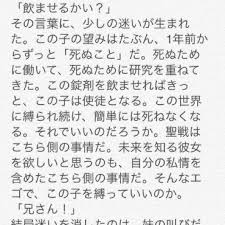 「飲ませるかい？」
その言葉に、少しの迷いが生まれ
た。この子の望みはたぶん、1年前か
らずっと「死ぬこと」だ。死ぬため
に働いて、死ぬために研究を重ねて
きた。この錠剤を飲ませればきっ
と、この子は使徒となる。この世界
に縛られ続け、簡単には死ねなくな
る。それでいいのだろうか。聖戦は
こちら側の事情だ。未来を知る彼女
を欲しいと思うのも、自分の私情を
含めたこちら側の事情だ。そんなエ
ゴで、この子を縛っていいのか。
「兄さん！」
結局迷いを消したのは、妹の叫びだ